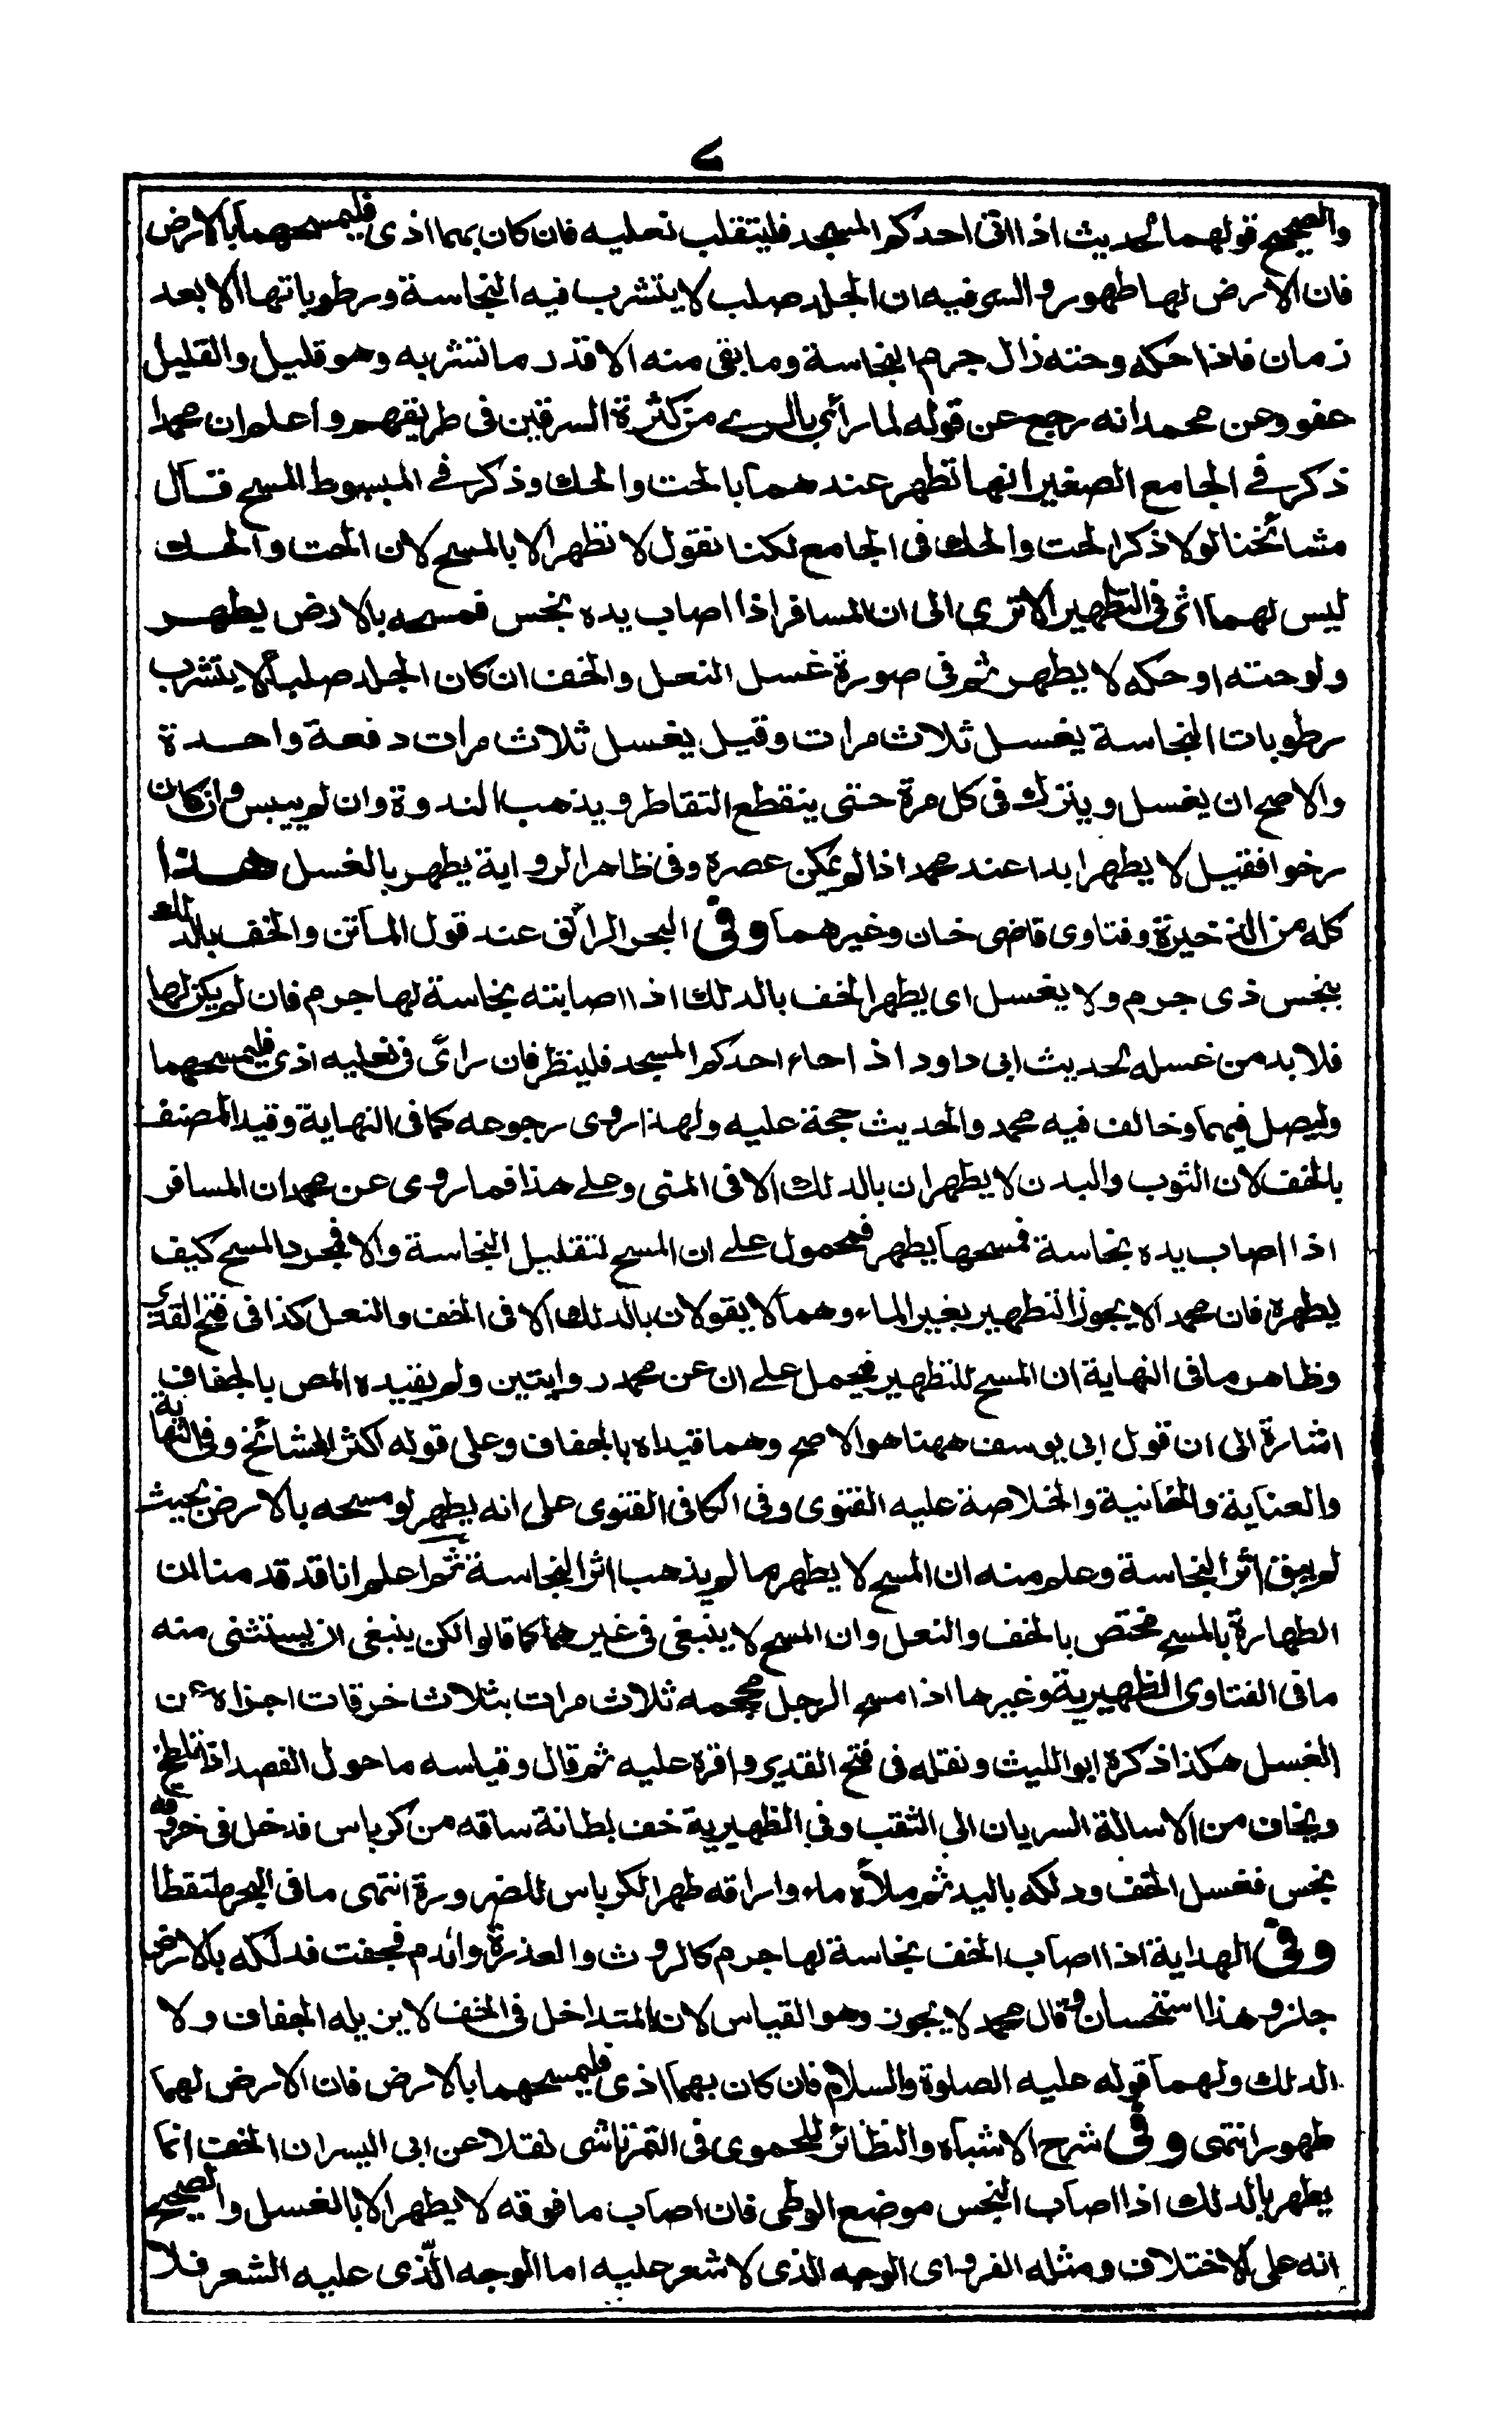 ٧
والصحيح قولهما لحديث اذا اتى احدكم المسجد فليتقلب نعليه فان كان بهما اذى فليمسحهما بالارض
فان الارض لها طهور والسر فيه ان الجلد صلب لا يتشرب فيه النجاسة ورطوباتها الا بعد
زمان فاذا حكه وحته زال جرم النجاسة وما بقى منه الا قدر ما تتشربه وهو قليل والقليل
عفو وعن محمد انه رجع عن قوله لما رأى بالرے من كثرة السرقين فى طريقهم واعلم ان محمدا
ذكر فے الجامع الصغير انها تطهر عندهما بالحت والحك وذكر فے المبسوط المسح قال
مشائخنا لولا ذكر الحت والحك فى الجامع لكنا نقول لا تطهر الا بالمسح لان الحت والحك
ليس لهما اثر فى التطهير الا ترى الى ان المسافر اذا اصاب يده نجس فمسحه بالارض يطهر
ولو حته او حكه لا يطهر ثم فى صورة غسل النعل والخف ان كان الجلد صلبا لا يتشرب
رطوبات النجاسة يغسل ثلاث مرات وقيل يغسل ثلاث مرات دفعة واحدة
والاصح ان يغسل ويترك فى كل مرة حتى ينقطع التقاطر ويذهب الندوة وان لم ييبس وان كان
رخوا فقيل لا يطهر ابدا عند محمد اذا لم يمكن عصره وفى ظاهر الرواية يطهر بالغسل هذا
كله من الذخيرة وفتاوى قاضى خان وغيرهما وفى البحر الرائق عند قول الماتن والخف بالدلك
بنجس ذى جرم ولا يغسل اى يطهر الخف بالدلك اذا اصابته نجاسة لها جرم فان لم يكن لها
فلا بد من غسله لحديث ابى داود اذا جاء احدكم المسجد فلينظر فان رأى فى نعليه اذى فليمسحهما
وليصل فيهما وخالف فيه محمد والحديث حجة عليه ولهذا روى رجوعه كما فى النهاية وقيد المصنف
بالخف لان الثوب والبدن لا يطهران بالدلك الا فى المنى وعلے هذا فما روى عن محمد ان المسافر
اذا اصاب يده نجاسة فمسحها يطهر فمحمول علے ان المسح لتقليل النجاسة والا فمجرد المسح كيف
يطهره فان محمد الا يجوز التطهير بغير الماء وهما لا يقولان بالدلك الا فى الخف والنعل كذا فى فتح القدير
وظاهر ما فى النهاية ان المسح للتطهير فيحمل علے ان عن محمد روايتين ولم يقيده المص بالجفاف
اشارة الى ان قول ابى يوسف ههنا هو الاصح وهما قيداه بالجفاف وعلى قوله اكثر المشائخ وفى النهاية
والعناية والخانية والخلاصة عليه الفتوى وفى الكافى الفتوى على انه يطهر لو مسحه بالارض بحيث
لم يبق اثر النجاسة وعلم منه ان المسح لا يطهر ما لم يذهب اثر النجاسة ثم اعلم انا قد قدمنا ان
الطهارة بالمسح مختص بالخف والنعل وان المسح لا ينبغى فى غيرهما كما قالوا لكن ينبغى ان يستثنى منه
ما فى الفتاوى الظهيرية وغيرها اذا مسح الرجل محجمه ثلاث مرات بثلاث خرقات اجزاه عن
الغسل هكذا ذكره ابو الليث ونقله فى فتح القدير واقره عليه ثم قال وقياسه ما حول الفصد اذا تلطخ
ويخاف من الاسالة السريان الى الثقب وفى الظهيرية خف بطانة ساقه من كرباس فدخل فى خروقه
نجس فغسل الخف ودلكه باليد ثم ملأه ماء واراقه طهر الكرباس للضرورة انتهى ما فى البحر ملتقطا
وفى الهداية اذا اصاب الخف نجاسة لها جرم كالروث والعذرة والدم فجفت فدلكه بالارض
جاز وهذا استحسان وقال محمد لا يجوز وهو القياس لان المتداخل فى الخف لا يزيله الجفاف ولا
الدلك ولهما قوله عليه الصلوة والسلام فان كان بهما اذى فليمسحهما بالارض فان الارض لهما
طهور انتهى وفى شرح الاشباه والنظائر للحموى فى التمرتاشى نقلا عن ابى اليسر ان الخف انما
يطهر بالدلك اذا اصاب النجس موضع الوطى فان اصاب ما فوقه لا يطهر الا بالغسل والصحيح
انه على الاختلاف ومثله الفرو اى الوجه الذى لا شعر عليه اما الوجه الذى عليه الشعر فلا